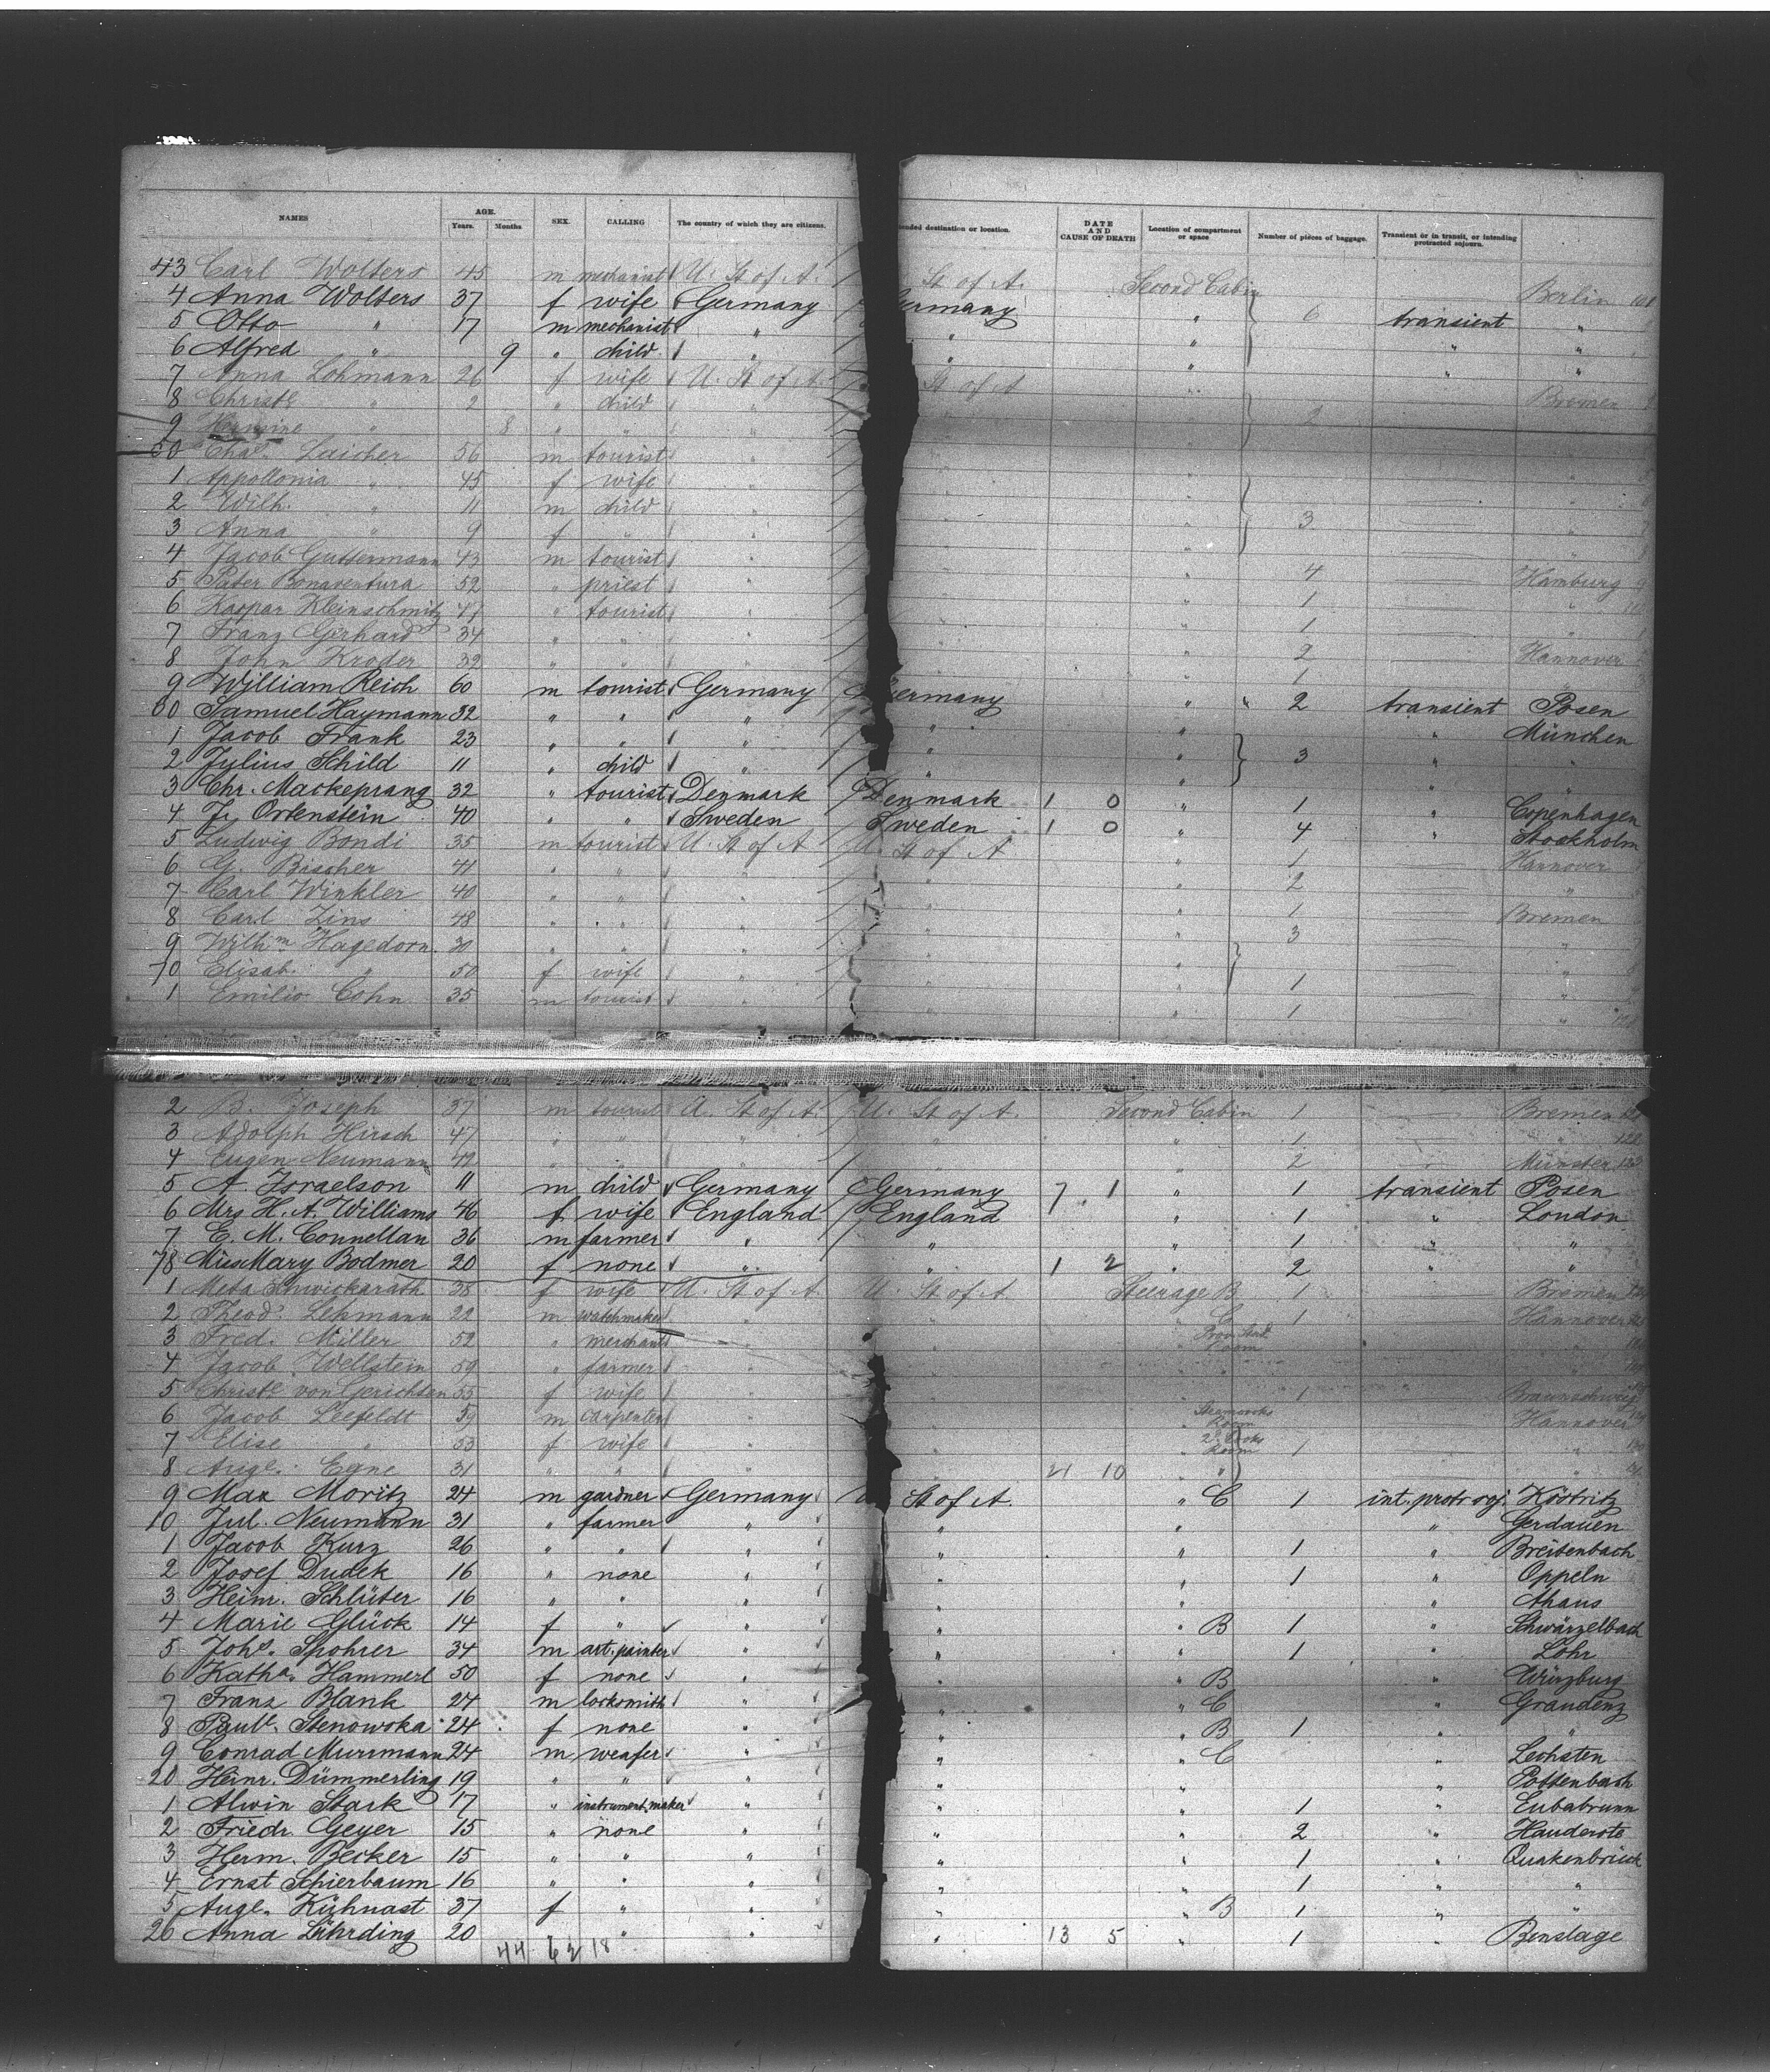 NAMES AGE. Years. Months SEX. CALLING The country of which they are citizens. ended destination or location. DATE AND CAUSE OF DEATH Location of compartment or space Number of pieces of baggage. Transient or in transit, or intending protracted sojourn.
43 Carl Wolters 45 m mechanist U. St of A. St of A. Second Cabin Berlin
4 Anna Wolters 37 f wife Germany ermany " 6 transient "
5 Otto " 17 m mechanist " " " " "
6 Alfred " 9 " child " " " " "
7 Anna Lohmann 26 f wife U. St of A. St of A " Bremen
8 Christe " 2 " child " " "
9 Hermine " 8 " " " " " 2
50 Chas. Laicher 56 m tourist " " "
1 Appollonia " 45 f wife " " " "
2 Wilh. " 11 m child " " " 3 "
3 Anna " 9 f " " " " "
4 Jacob Guttermann 43 m tourist " " " 4 Hamburg
5 Pater Bonaventura 52 " priest " " " 1 "
6 Kaspar Kleinschmitz 41 " tourist " " " 1 "
7 Franz Gerhard 34 " " " " " 2 Hannover
8 John Kroder 32 " " " " " 1 "
9 William Reich 60 m tourist Germany Germany " 2 transient Posen
60 Samuel Haymann 32 " " " " " " München
1 Jacob Frank 23 " " " " " 3 " "
2 Julius Schild 11 " child " " " " "
3 Chr. Mackeprang 32 " tourist Denmark Denmark 1 0 " 1 " Copenhagen
4 J. Ortenstein 40 " " Sweden Sweden 1 0 " 4 " Stockholm
5 Ludwig Bondi 35 m tourist U. St of A U. St of A " 1 Hannover
6 G. Bischer 41 " " " " " 2 "
7 Carl Winkler 40 " " " " " 1 Bremen
8 Carl Zins 48 " " " " " 3 "
9 Wilhm Hagedorn 30 " " " " " "
70 Elisab. " 50 f wife " " " 1 "
1 Emilio Cohn 35 m tourist " " " 1 "
2 B. Joseph 37 m tourist U. St of A. U. St of A. Second Cabin 1 Bremen
3 Adolph Hirsch 47 " " " " " 1 " 122
4 Eugen Neumann 42 " " " " " 2 Münster 123
5 A. Israelson 11 m child Germany Germany 7 1 " 1 transient Posen
6 Mrs H. A. Williams 46 f wife England England " 1 " London
7 E. M. Connellan 36 m farmer " " " 1 " "
78 Miss Mary Bodmer 20 f none " " 1 2 " 2 " "
1 Meta Schwickarath 38 f wife U. St of A U. St of A Steerage B 1 Bremen
2 Theod. Lehmann 22 m watchmaker " " " C 1 Hannover
3 Fred. Miller 52 " merchant " " Room "
4 Jacob Wellstein 59 " farmer " " " "
5 Christe von Gerichten 55 f wife " " " 1 Braunschweig
6 Jacob Leefeldt 59 m carpenter " " Room Hannover
7 Elise " 53 f wife " " 2d Cooks Room 1 "
8 Auge. Egne 31 " " " " 21 10 " "
9 Max Moritz 24 m gardner Germany U St of A. " C 1 int. protr. soj. Köstritz
10 Jul. Neumann 31 " farmer " " " " Gerdauen
1 Jacob Kurz 26 " " " " " 1 " Breitenbach
2 Josef Dudek 16 " none " " " 1 " Oppeln
3 Heinr. Schlüter 16 " " " " " " Ahaus
4 Marie Glück 14 f " " " " B 1 " Schwärzelbach
5 Johs. Spohrer 34 m art. painter " " " 1 " Lohr
6 Katha. Hammerl 50 f none " " " B " Würzburg
7 Franz Blank 24 m locksmith " " " C " Graudenz
8 Paule. Stenowska 24 f none " " " B 1 " "
9 Conrad Murrmann 24 m weafer " " " C " Lechsten
20 Heinr. Dümmerling 19 " " " " " " Pottenbach
1 Alwin Stark 17 " instrument maker " " " 1 " Eubabrunn
2 Friedr. Geyer 15 " none " " " 2 " Hauderote
3 Herm. Becker 15 " " " " " 1 " Quakenbrück
4 Ernst Schierbaum 16 " " " " " 1 " "
5 Auge. Kühnast 37 f " " " " B 1 " "
26 Anna Lührding 20 " " " 13 5 " 1 " Benstage
44 62 18